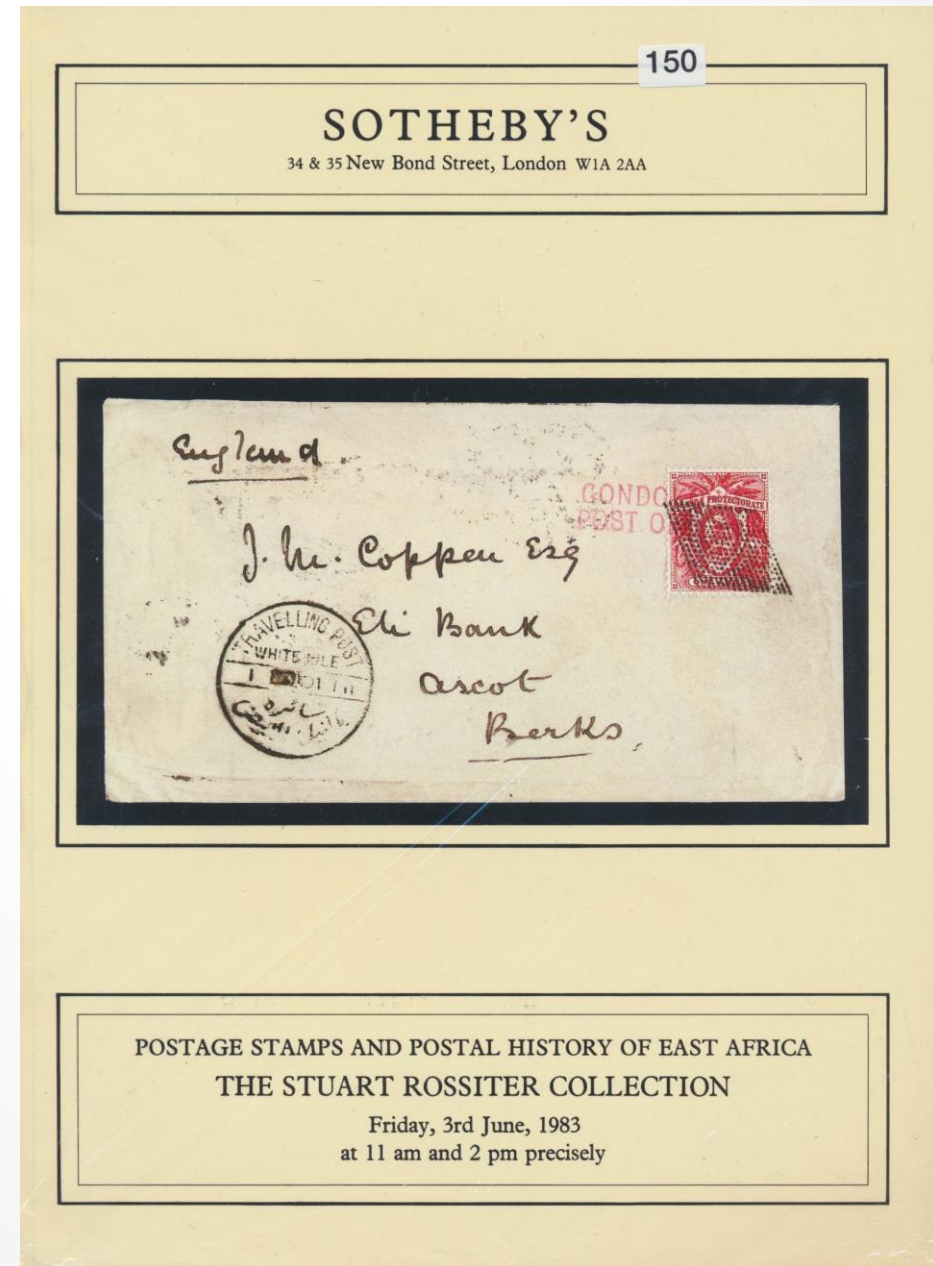 150
SOTHEBY'S
34 & 35 New Bond Street, London W1A 2AA
England.
GONDO
POST O
PROTECTORATE
J. M. Coppen Esq
Eli Bank
Ascot
Berks.
TRAVELLING POST
WHITE NILE
POSTAGE STAMPS AND POSTAL HISTORY OF EAST AFRICA
THE STUART ROSSITER COLLECTION
Friday, 3rd June, 1983
at 11 am and 2 pm precisely